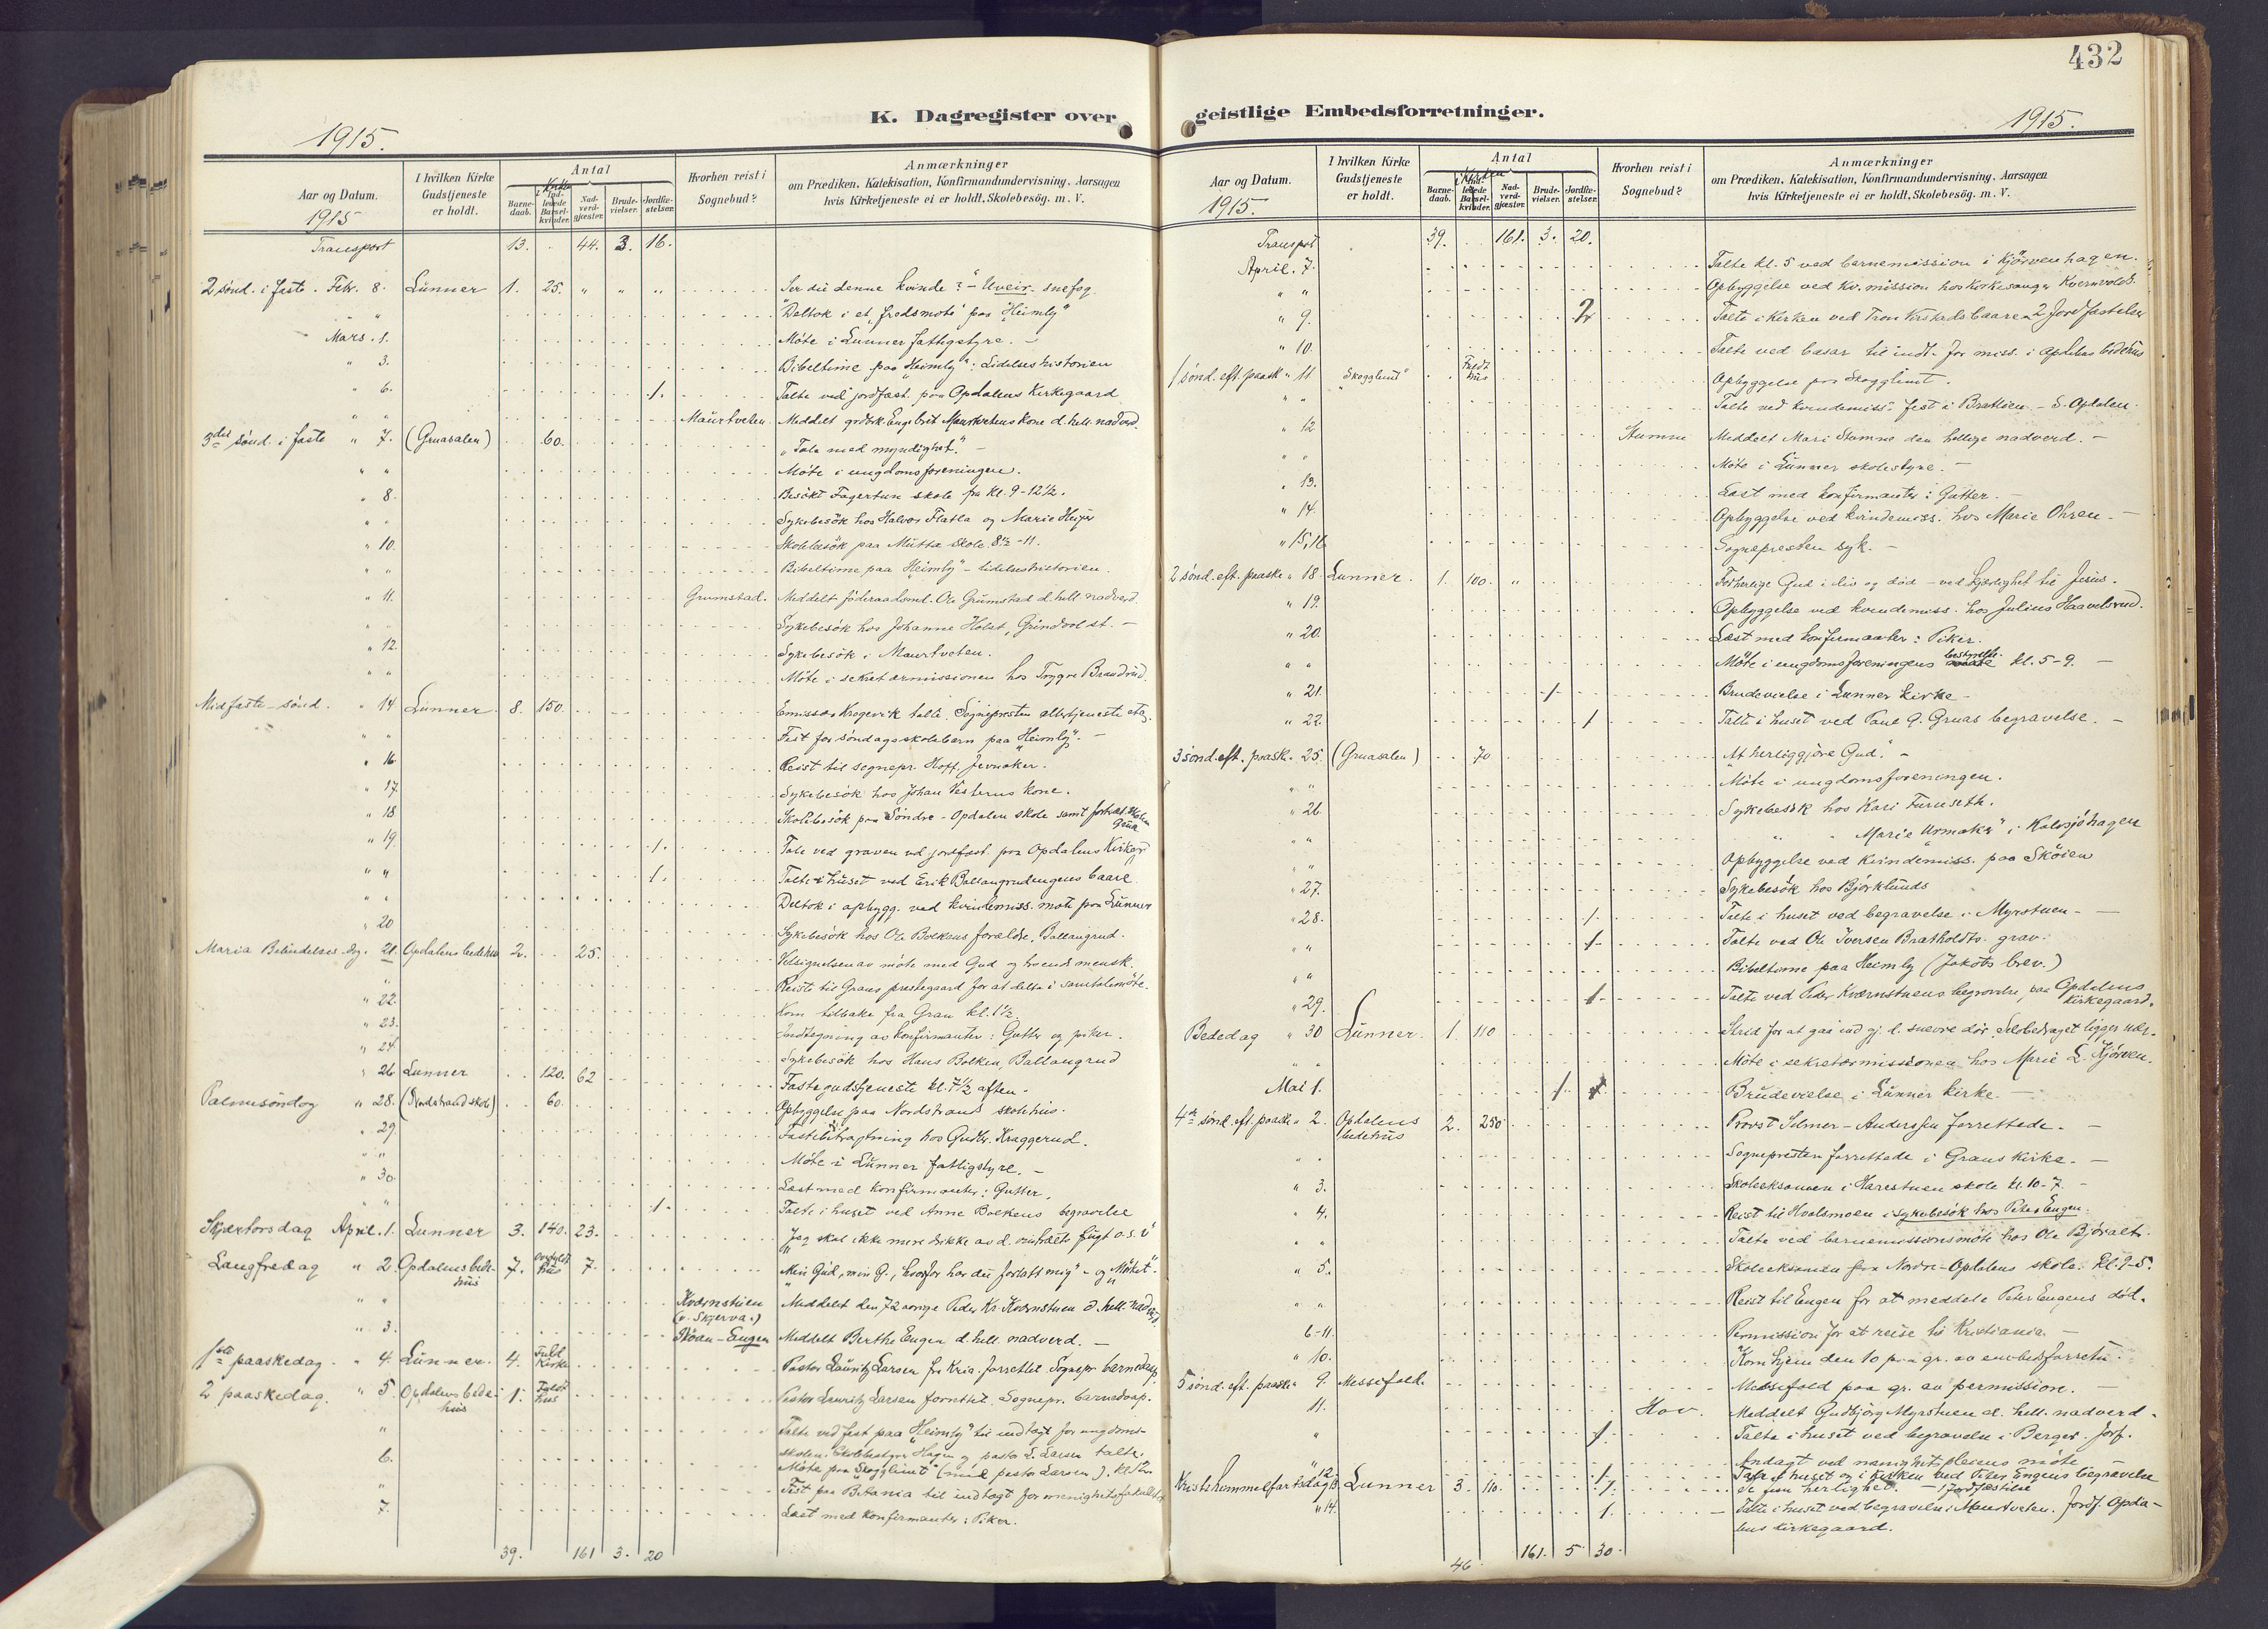 432
K. Dagregister over geistlige Embedsforretninger.
1915.
1915.
Aar og Datum.
1915
I hvilken Kirke Gudstjeneste er holdt.
Antal
Barne-daab.
i Kirken
Indledede Barselkvinder.
Nad-verd-gjæster.
Brude-vielser.
Jordfæ-stelser.
Hvorhen reist i Sognebud?
Anmærkninger
om Prædiken, Katekisation, Konfirmandundervisning, Aarsagen
hvis Kirketjeneste ei er holdt, Skolebesøg. m. V.
Transport 13. 44. 3. 16.
2 sönd. i faste. Febr. 8. Lunner 1. 25. " " " Ser du denne kvinde? - Uveir. snefog.
" Deltok i et "fredsmöte" paa "Heimly"
Mars. 1. Möte i Lunner fattigstyre. -
" 3. Bibeltime paa "Heimly": Lidelseshistorien
" 6. 1. Talte ved jordfæst. paa Opdalens Kirkegaard
" " Maurtveten. Meddelt grdbr. Engebret Maurtvetens kone d. hell. nadverd.
3die sönd. i faste " 7. (Gruasalen) 60. "Tale med myndighet." -
" " Möte i ungdomsforeningen.
" 8. Besökt Fagertun skole fra Kl. 9-12½.
" " Sykebesök hos Halvor Flatla og Marie Heger
" 10. Skolebesök paa Mutta skole 8½-11.
" " Bibeltime paa "Heimly" - Lidelseshistorien.
" 11. Grumstad. Meddelt föderaadsmd. Ole Grumstad d. hell. nadverd.
" " Sykebesök hos Johanne Holst, Grindvol st. -
" 12. Sykebesök i Maurtveten.
" " Möte i sekretærmissionen hos Trygve Brandrud.
Midfaste-sönd. " 14 Lunner 8. 150. Emissær Krogevik talte. Sognepresten altertjeneste etc.
" " Fest for söndagsskolebarn paa "Heimly". -
" 16. Reist til sognepr. Hoff, Jevnaker.
" 17. Sykebesök hos Johan Vesterns kone.
" 18 Skolebesök paa Söndre-Opdalen skole samt
" 19. 1. Tale ved graven ved jordfæst. paa Opdalens Kirkegd
" " 1. Talte i huset ved Erik Ballangrudengens baare.
" " Deltok i opbygg. ved kvindemiss. möte paa Lunner
" 20 Sykebesök hos Ole Bolkens forældre, Ballangrud.
Maria Bebudelses dg. 21. Opdalens bedehus 2. 25. Velsignelsen av möte med Gud og troende mensk.
" Reiste til Grans prestegaard for at delta i samtalemöte.
" 22. Kom tilbake fra Gran kl. 1½
" 23. Indtegning av konfirmanter: Gutter og piker.
" 24. Sykebesök hos Hans Bolken, Ballangrud
" 26 Lunner 120. 62 Fastegudstjeneste kl. 7½ aften.
Palmesöndag " 28. (Nordstrand skole) 60. Opbyggelse paa Nordstrand skolehus.
" 29. Fastebetragtning hos Gudbr. Kraggerud.
" " Möte i Lunner fattigstyre. -
" 30. Læst med konfirmanter: Gutter.
" " 1. Talte i huset ved Anne Bolkens begravelse
Skjærtorsdag April. 1. Lunner 3. 140. 23. "Jeg skal ikke mere drikke av d. vintræets frugt o.s.v."
Langfredag " 2. Opdalens bedehus 7. Overfyldt hus 7. "Min Gud, min G., hvorfor har du forlatt mig" - og "Möket".
" " Kværnstuen (v. Skjerva.) Meddelt den 72 aarige Peder Kr. Kværnstuen d. hell. nadverd
" 3. Röan-Eugen Meddelt Berthe Eugen d. hell. nadverd. -
1ste paaskedag. " 4. Lunner. 4. Fuld Kirke Pastor Lauritz Larsen fra Kria. forrettet. Sognepr. barnedaap.
2 paaskedag. " 5. Opdalens bedehus 1. Fuldt hus Pastor Lauritz Larsen forrettet. Sognepr. barnedaap.
" Talte ved fest paa "Heimly" til indtægt for ungdoms-
skolen. Skolebestyrer Hagen og pastor L. Larsen talte.
6. Möte paa "Skogglimt" (med pastor Larsen).
" Fest paa Betania til indtægt for menighetsfakultetet
7. Læst med konfirmanter: Piker.
39. 161 3. 20
Aar og Datum.
1915.
I hvilken Kirke Gudstjeneste er holdt.
Antal
Barne-daab.
i Kirken
Indledede Barselkvinder.
Nad-verd-gjæster.
Brude-vielser.
Jordfæ-stelser.
Hvorhen reist i Sognebud?
Anmærkninger
om Prædiken, Katekisation, Konfirmandundervisning, Aarsagen
hvis Kirketjeneste ei er holdt, Skolebesøg. m. V.
Transport 39. 161. 3. 20.
April. 7. Talte kl. 5 ved barnemission i Kjörvenhagen.
" " Opbyggelse ved Kv. mission hos kirkesanger Kvernvolds.
" 9. 2 Talte i Kirken ved Tron Verstads baare. 2 Jordfæstelser
" 10. Talte ved basar til indt. for miss. i Opdalens bedehus
1 sönd. eft. paask. " 11. "Skogglimt" Fuldt hus Opbyggelse paa Skogglimt.
" " Talte ved kvindemiss. fest i Bratlien - S. Opdalen.
" 12. Stumne Meddelt Mari Stumne den hellige nadverd. -
" " Möte i Lunner skolestyre. -
" 13. Læst med konfirmanter: Gutter.
" 14. Opbyggelse ved kvindemiss. hos Marie Ohren. -
" 15, 16 Sognepresten syk. -
2 sönd. eft. paaske " 18. Lunner. 1. 100. " Forherlige Gud i liv og död - ved kjærlighet til Jesus.
" 19. Opbyggelse ved kvindemiss. hos Julius Haavelsrud.
" 20. Læst med konfirmanter: Piker.
" " Möte i ungdomsforeningens bestyrelse kl. 5-9. -
" 21. 1. Brudevielse i Lunner kirke -
" 22. 1 Talte i huset ved Paul G. Gruas begravelse. -
3 sönd. eft. paaske " 25. (Gruasalen) 70 "At herliggjöre Gud." -
" " Möte i ungdomsforeningen.
" 26. Sykebesök hos Kari Furuseth.
" " " " Marie "Urmaker" i Kalvsjöhagen
" " Opbyggelse ved kvindemiss. paa Sköien
" 27. Sykebesök hos Björklunds
" 28. 1. Talte i huset ved begravelse i Myrstuen - -
" " 1. Talte ved Ole Iversen Bratholdts grav.
" " Bibeltime paa Heimly (Jakobs brev.)
" 29. 1. Talte ved Peder Kværnstuens begravelse, paa Opdalens kirkegaard.
Bededag " 30 Lunner. 1. 110 Strid for at gaa ind gj. d. snevre dör. Selvbedraget ligger nær.
" " Möte i sekretærmissionen hos Marie L. Kjörven.
Mai 1. 1. Brudevielse i Lunner kirke. -
4de sönd. eft. paaske " 2. Opdalens bedehus 2. 250 Provst Selmer-Anderssen forrettede. -
" " Sognepresten forrettede i Grans kirke. -
" 3. Skoleeksamen i Harestuen skole kl. 10-7. -
" 4. Reist til Hvalsmoen i sykebesök hos Peter Eugen.
" " Talte ved barnemissionsmöte hos Ole Björalt.
" 5. Skoleeksamen paa Nordre-Opdalens skole. Kl. 9-5.
" " Reist til Eugen for at meddele Peter Eugens död.
6-11. Permission for at reise til Kristiania. -
" 10. Kom hjem den 10 paa gr. av embedsforretn. -
5 sönd. eft. paaske 9. Messefald. Messefald paa gr. av permission. -
11. Hov. Meddelt Gudbjörg Myrstuen d. hell. nadverd.
" 1. Talte i huset ved begravelse i Berger. Jordf.
Andagt ved menighetspleiens möte
" 12. 1. Talte i huset og i kirken ved Peter Engens begravelse
Kristi himmelfartsdag 13. Lunner 3. 110. 1. Se hans herlighet. - 1 jordfæstelse
" 14. 1. Talte i huset ved begravelse i Maurtveten. Jordf. Opda-
lens kirkegaard.
46 161. 5 30.